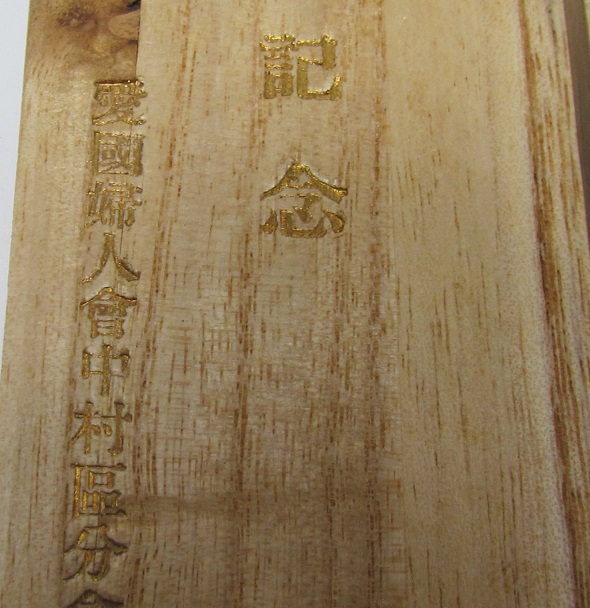 記念
愛國婦人會中村區分會